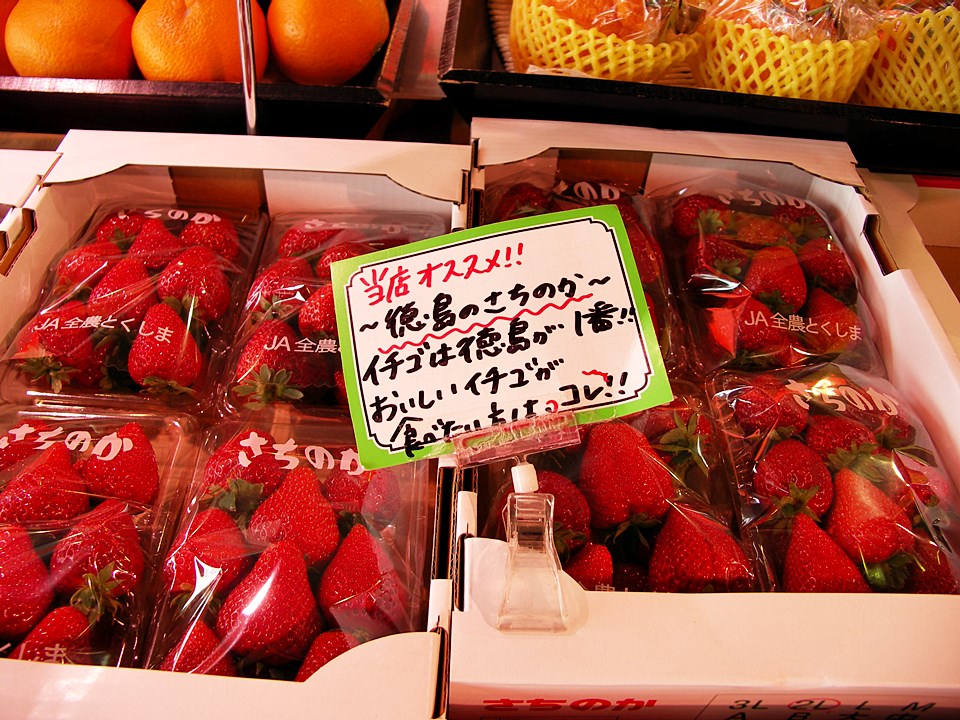 さちのか
さちのか
さちのか
さちのか
当店オススメ!!
～徳島のさちのか～
イチゴは徳島が1番!!
おいしいイチゴが
食べたい方はコレ!!
JA全農とくしま
JA全農
JA全農とくしま
さちのか
さちのか
さちのか
さちのか
3L 2L L M
A